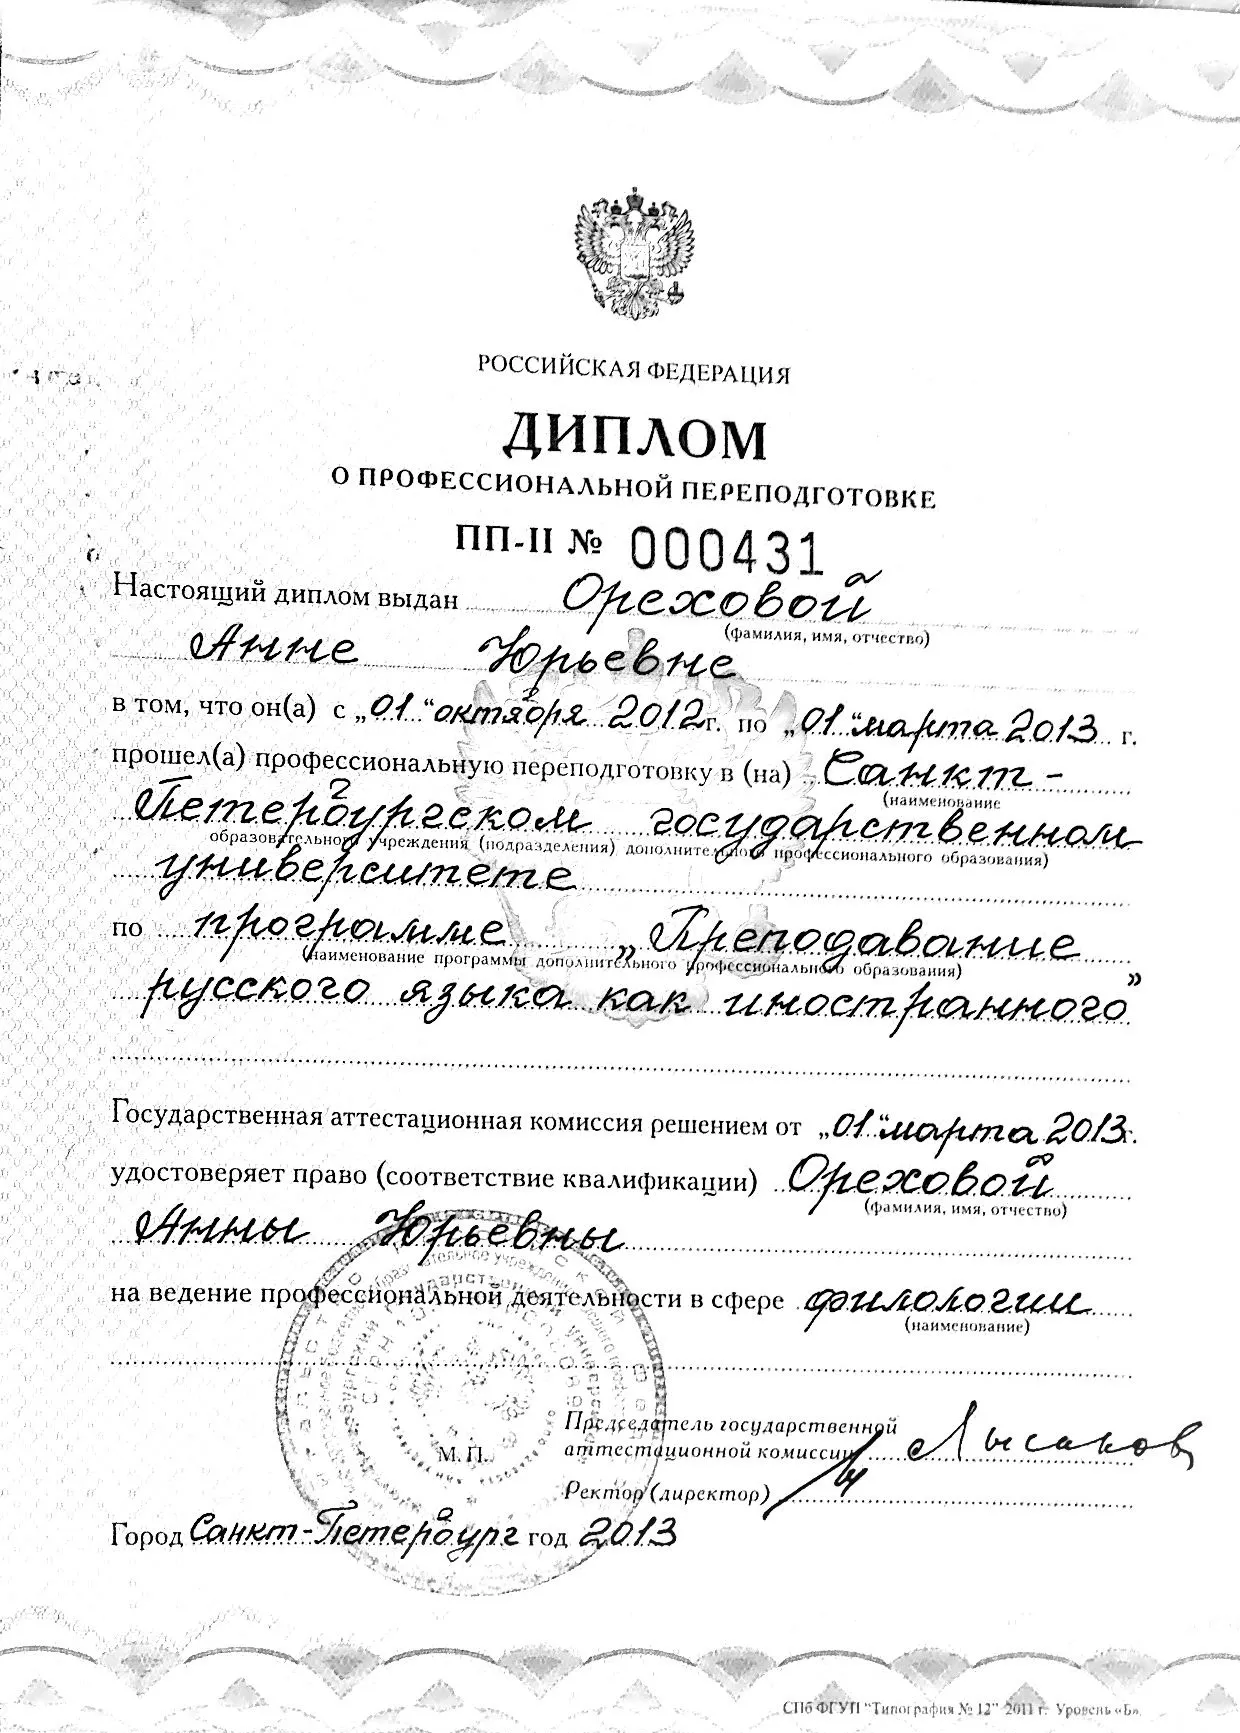 РОССИЙСКАЯ ФЕДЕРАЦИЯ
ДИПЛОМ
О ПРОФЕССИОНАЛЬНОЙ ПЕРЕПОДГОТОВКЕ
ПП-II № 000431
Настоящий диплом выдан Ореховой
(фамилия, имя, отчество)
Анне Юрьевне
в том, что он(а) с „01“ октября 2012 г. по „01“ марта 2013 г.
прошел(а) профессиональную переподготовку в (на) Санкт-
(наименование
Петербургском государственном
образовательного учреждения (подразделения) дополнительного профессионального образования)
университете
по программе „Преподавание
(наименование программы дополнительного профессионального образования)
русского языка как иностранного”
Государственная аттестационная комиссия решением от „01“ марта 2013 г.
удостоверяет право (соответствие квалификации) Ореховой
(фамилия, имя, отчество)
Анны Юрьевны
на ведение профессиональной деятельности в сфере филологии
(наименование)
Председатель государственной
аттестационной комиссии Лысаков
М.П.
Ректор (директор)
Город Санкт-Петербург год 2013
СПб ФГУП "Типография № 12" 2011 г. Уровень «Б»